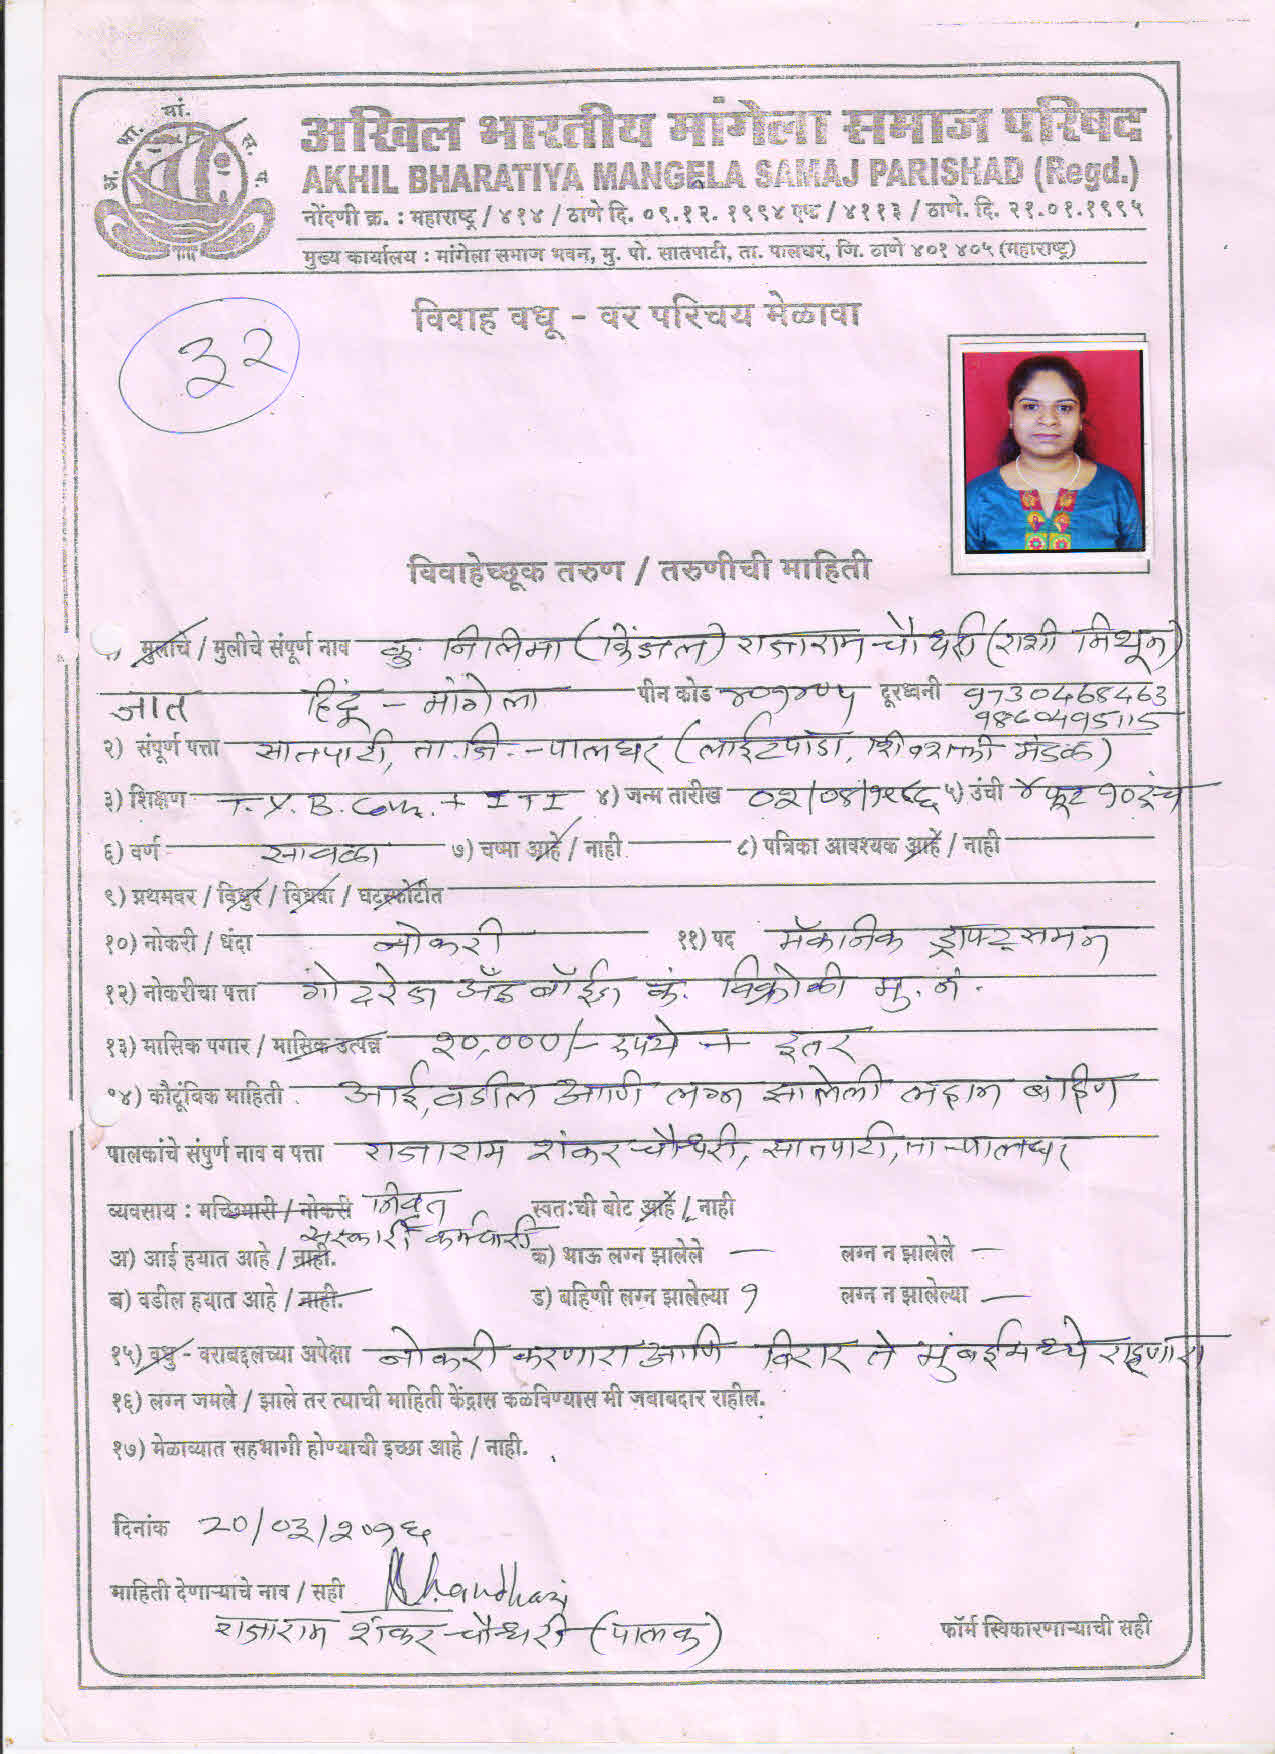 अ. भा. मां. स. प.
अखिल भारतीय मांगेला समाज परिषद
AKHIL BHARATIYA MANGELA SAMAJ PARISHAD (Regd.)
नोंदणी क्र. : महाराष्ट्र / ४१४ / ठाणे दि. ०९.१२. १९९४ एफ / ४११३ / ठाणे. दि. २१.०१.१९९५
मुख्य कार्यालय : मांगेला समाज भवन, मु. पो. सातपाटी, ता. पालघर, जि. ठाणे ४०१ ४०५ (महाराष्ट्र)
विवाह वधू - वर परिचय मेळावा
३२
विवाहेच्छूक तरुण / तरुणीची माहिती
१) मुलाचे / मुलीचे संपूर्ण नाव कु. निलिमा (किंजल) राजाराम चौधरी (राशी मिथून)
जात हिंदू - मांगेला पीन कोड ४०१४०५ दूरध्वनी ९730468463
९860495115
२) संपूर्ण पत्ता सातपाटी, ता. जि. - पालघर (लाईटपाडा, शिवशक्ती मंडळ)
३) शिक्षण T. Y. B. Com. + I T I ४) जन्म तारीख ०२/०४/१९८६ ५) उंची ४ फूट १० इंच
६) वर्ण सावळा ७) चष्मा आहे / नाही ८) पत्रिका आवश्यक आहे / नाही
९) प्रथमवर / विधुर / विधवा / घटस्फोटीत
१०) नोकरी / धंदा नोकरी ११) पद मॅकानिक ड्राफ्ट्समन
१२) नोकरीचा पत्ता गोदरेज अँड बॉईज कं. विक्रोळी मुं.
१३) मासिक पगार / मासिक उत्पन्न २०,०००/- रुपये + इतर
१४) कौटूंबिक माहिती आई, वडील आणि लग्न झालेली लहान बहिण
पालकांचे संपुर्ण नाव व पत्ता राजाराम शंकर चौधरी, सातपाटी, ता - पालघर
व्यवसाय : मच्छिमारी / नोकरी निवृत्त स्वतःची बोट आहे / नाही
सरकारी कर्मचारी
अ) आई हयात आहे / नाही. क) भाऊ लग्न झालेले — लग्न न झालेले —
ब) वडील हयात आहे / नाही. ड) बहिणी लग्न झालेल्या १ लग्न न झालेल्या —
१५) वधु - वराबद्दलच्या अपेक्षा नोकरी करणारा आणि विरार ते मुंबईमध्ये राहणारा
१६) लग्न जमले / झाले तर त्याची माहिती केंद्रास कळविण्यास मी जबाबदार राहील.
१७) मेळाव्यात सहभागी होण्याची इच्छा आहे / नाही.
दिनांक २०/०३/२०१६
माहिती देणाऱ्याचे नाव / सही Chaudhari
राजाराम शंकर चौधरी (पालक)
फॉर्म स्विकारणाऱ्याची सही